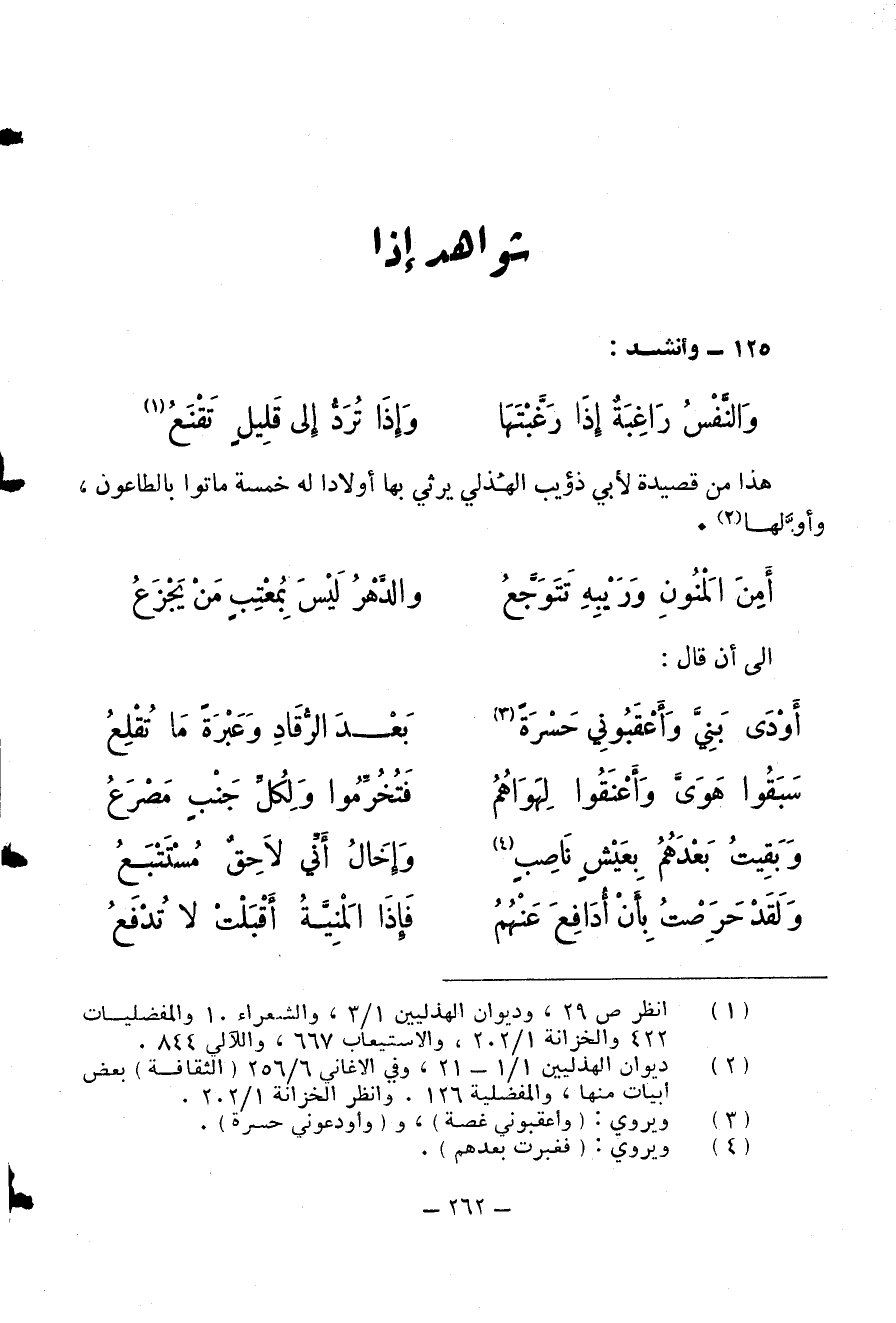 شواهد إذا
١٢٥ ـ وأنشد :
وَالنَّفْسُ رَاغِبَةٌ إِذَا رَغَّبْتَهَا وَإِذَا تُرَدُّ إِلى قَلِيلٍ تَقْنَعُ(١)
هذا من قصيدة لأبي ذؤيب الهُذلي يرثي بها أولادا له خمسة ماتوا بالطاعون ،
وأوَّلها(٢) .
أَمِنَ الْمَنُونِ وَرَيْبِهِ تَتَوَجَّعُ والدَّهْرُ لَيْسَ بِمُعْتِبٍ مَنْ يَجْزَعُ
الى أن قال :
أَوْدَى بَنِيَّ وَأَعْقَبُونِي حَسْرَةً(٣) بَعْدَ الرُّقَادِ وَعَبْرَةً مَا تُقْلِعُ
سَبَقُوا هَوَىَّ وَأَعْنَقُوا لِهَوَاهُمُ فَتُخُرِّمُوا وَلِكُلِّ جَنْبٍ مَصْرَعُ
وَبَقِيتُ بَعْدَهُمُ بِعَيْشٍ نَاصِبٍ(٤) وَإِخَالُ أَنِّي لاَحِقٌ مُسْتَتْبَعُ
وَلَقَدْ حَرَِصْتُ بِأَنْ أُدَافِعَ عَنْهُمُ فَإِذَا الْمَنِيَّةُ أَقْبَلَتْ لا تُدْفَعُ
(١) انظر ص ٢٩ ، وديوان الهذليين ٣/١ ، والشعراء ١٠ والمفضليات
٤٢٢ والخزانة ٢٠٢/١ ، والاستيعاب ٦٦٧ ، واللآلي ٨٤٤ .
(٢) ديوان الهذليين ١/١ ـ ٢١ ، وفي الاغاني ٢٥٦/٦ ( الثقافة ) بعض
أبيات منها ، والمفضلية ١٢٦ . وانظر الخزانة ٢٠٢/١ .
(٣) ويروي : ( وأعقبوني غصة ) ، و ( وأودعوني حسرة ) .
(٤) ويروي : ( فغبرت بعدهم ) .
ـ ٢٦٢ ـ